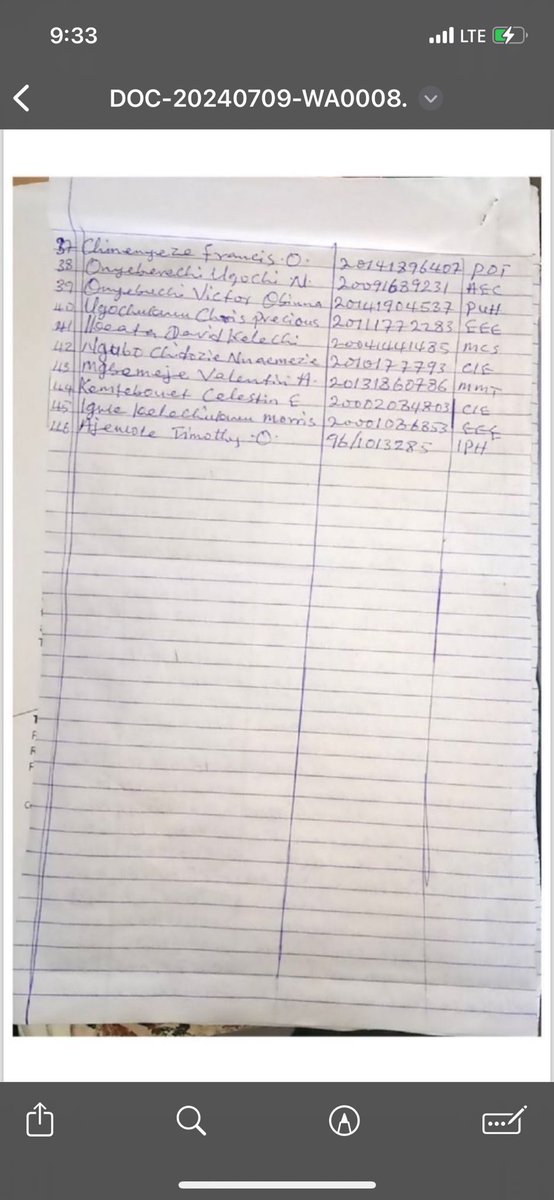 9:33 LTE
DOC-20240709-WA0008.
37 Chimenyeze Francis. O. 20141896407 POT
38 Onyeberechi Ugochi N. 20091689231 AEC
39 Onyebuchi Victor Obinna 20141904537 PUH
40 Ugochukwu Chris Precious 20111772283 EEE
41 David Kelechi 20041441485 MCS
42 Ngubo Chidozie Nnaemezie 2010177793 CIE
43 Mgbemeje Valentin A. 20131860786 MMT
44 Celestin E 20002034803 CIE
45 Igwe Kelechukwu Morris 20001036853 EEE
46 Timothy .O. 96/1013285 IPH